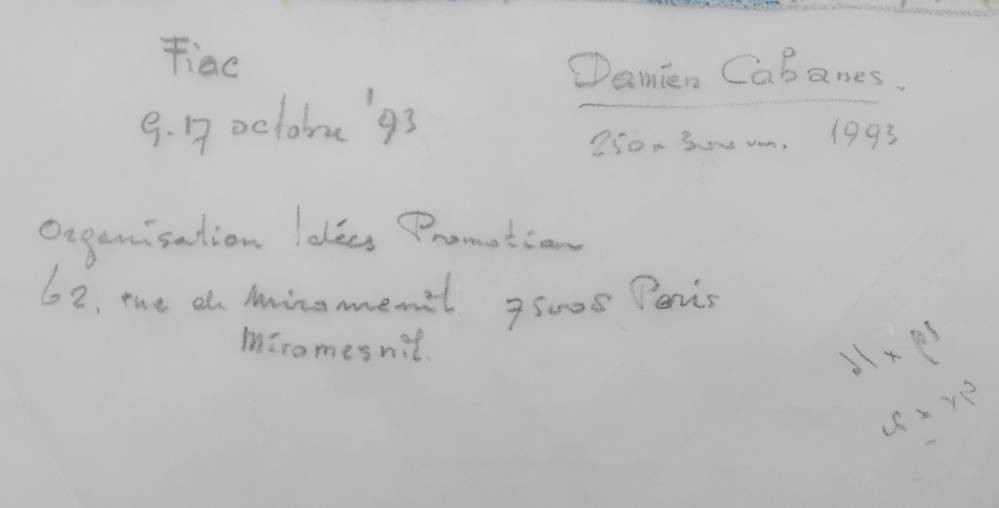 Fiac
9.17 octobre '93
Damien Cabanes.
250 x 1993
Organisation Idées Promotion
62, rue de Miromenil 75008 Paris
Miromesnil.